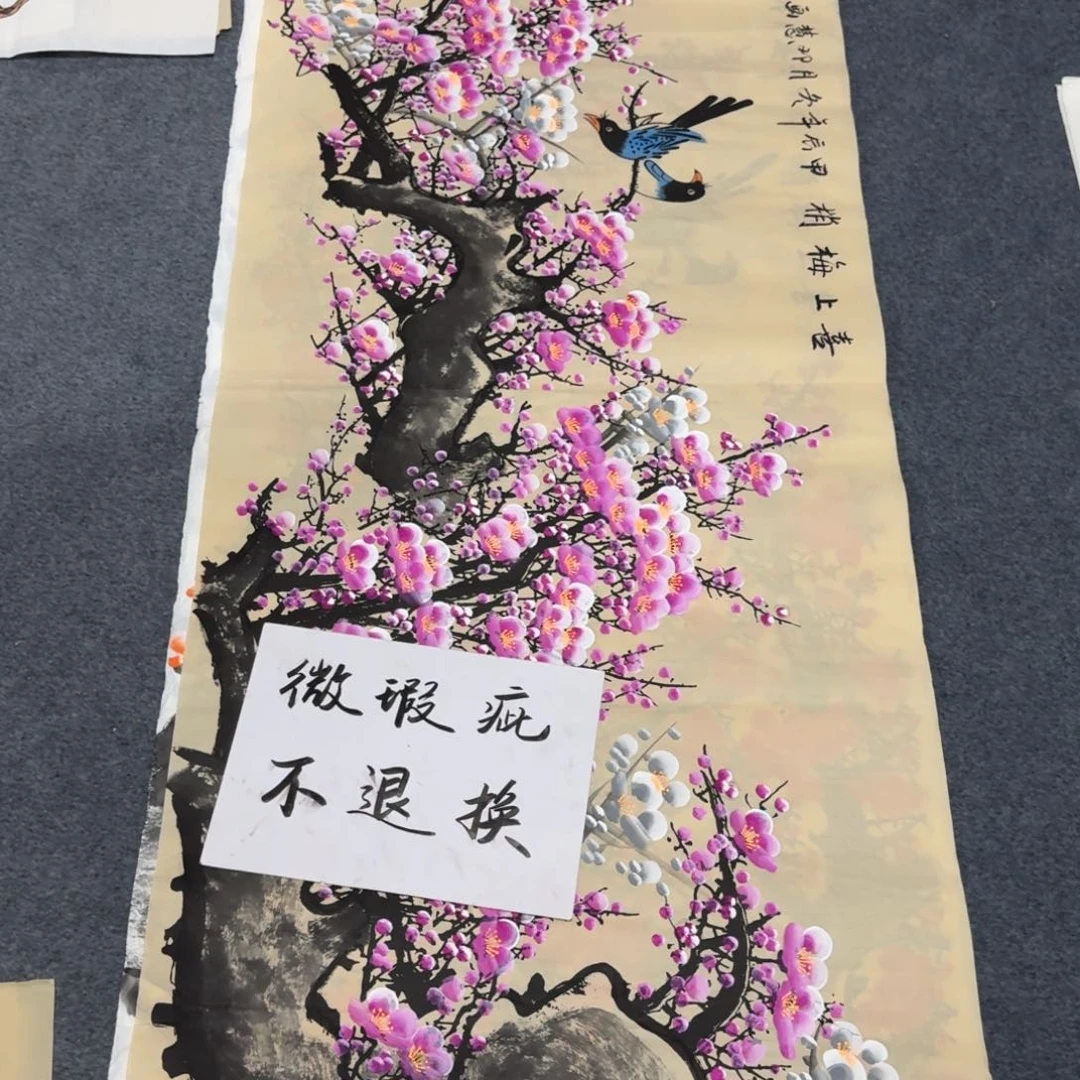 喜上梅梢 甲辰年冬月
微瑕疵
不退换